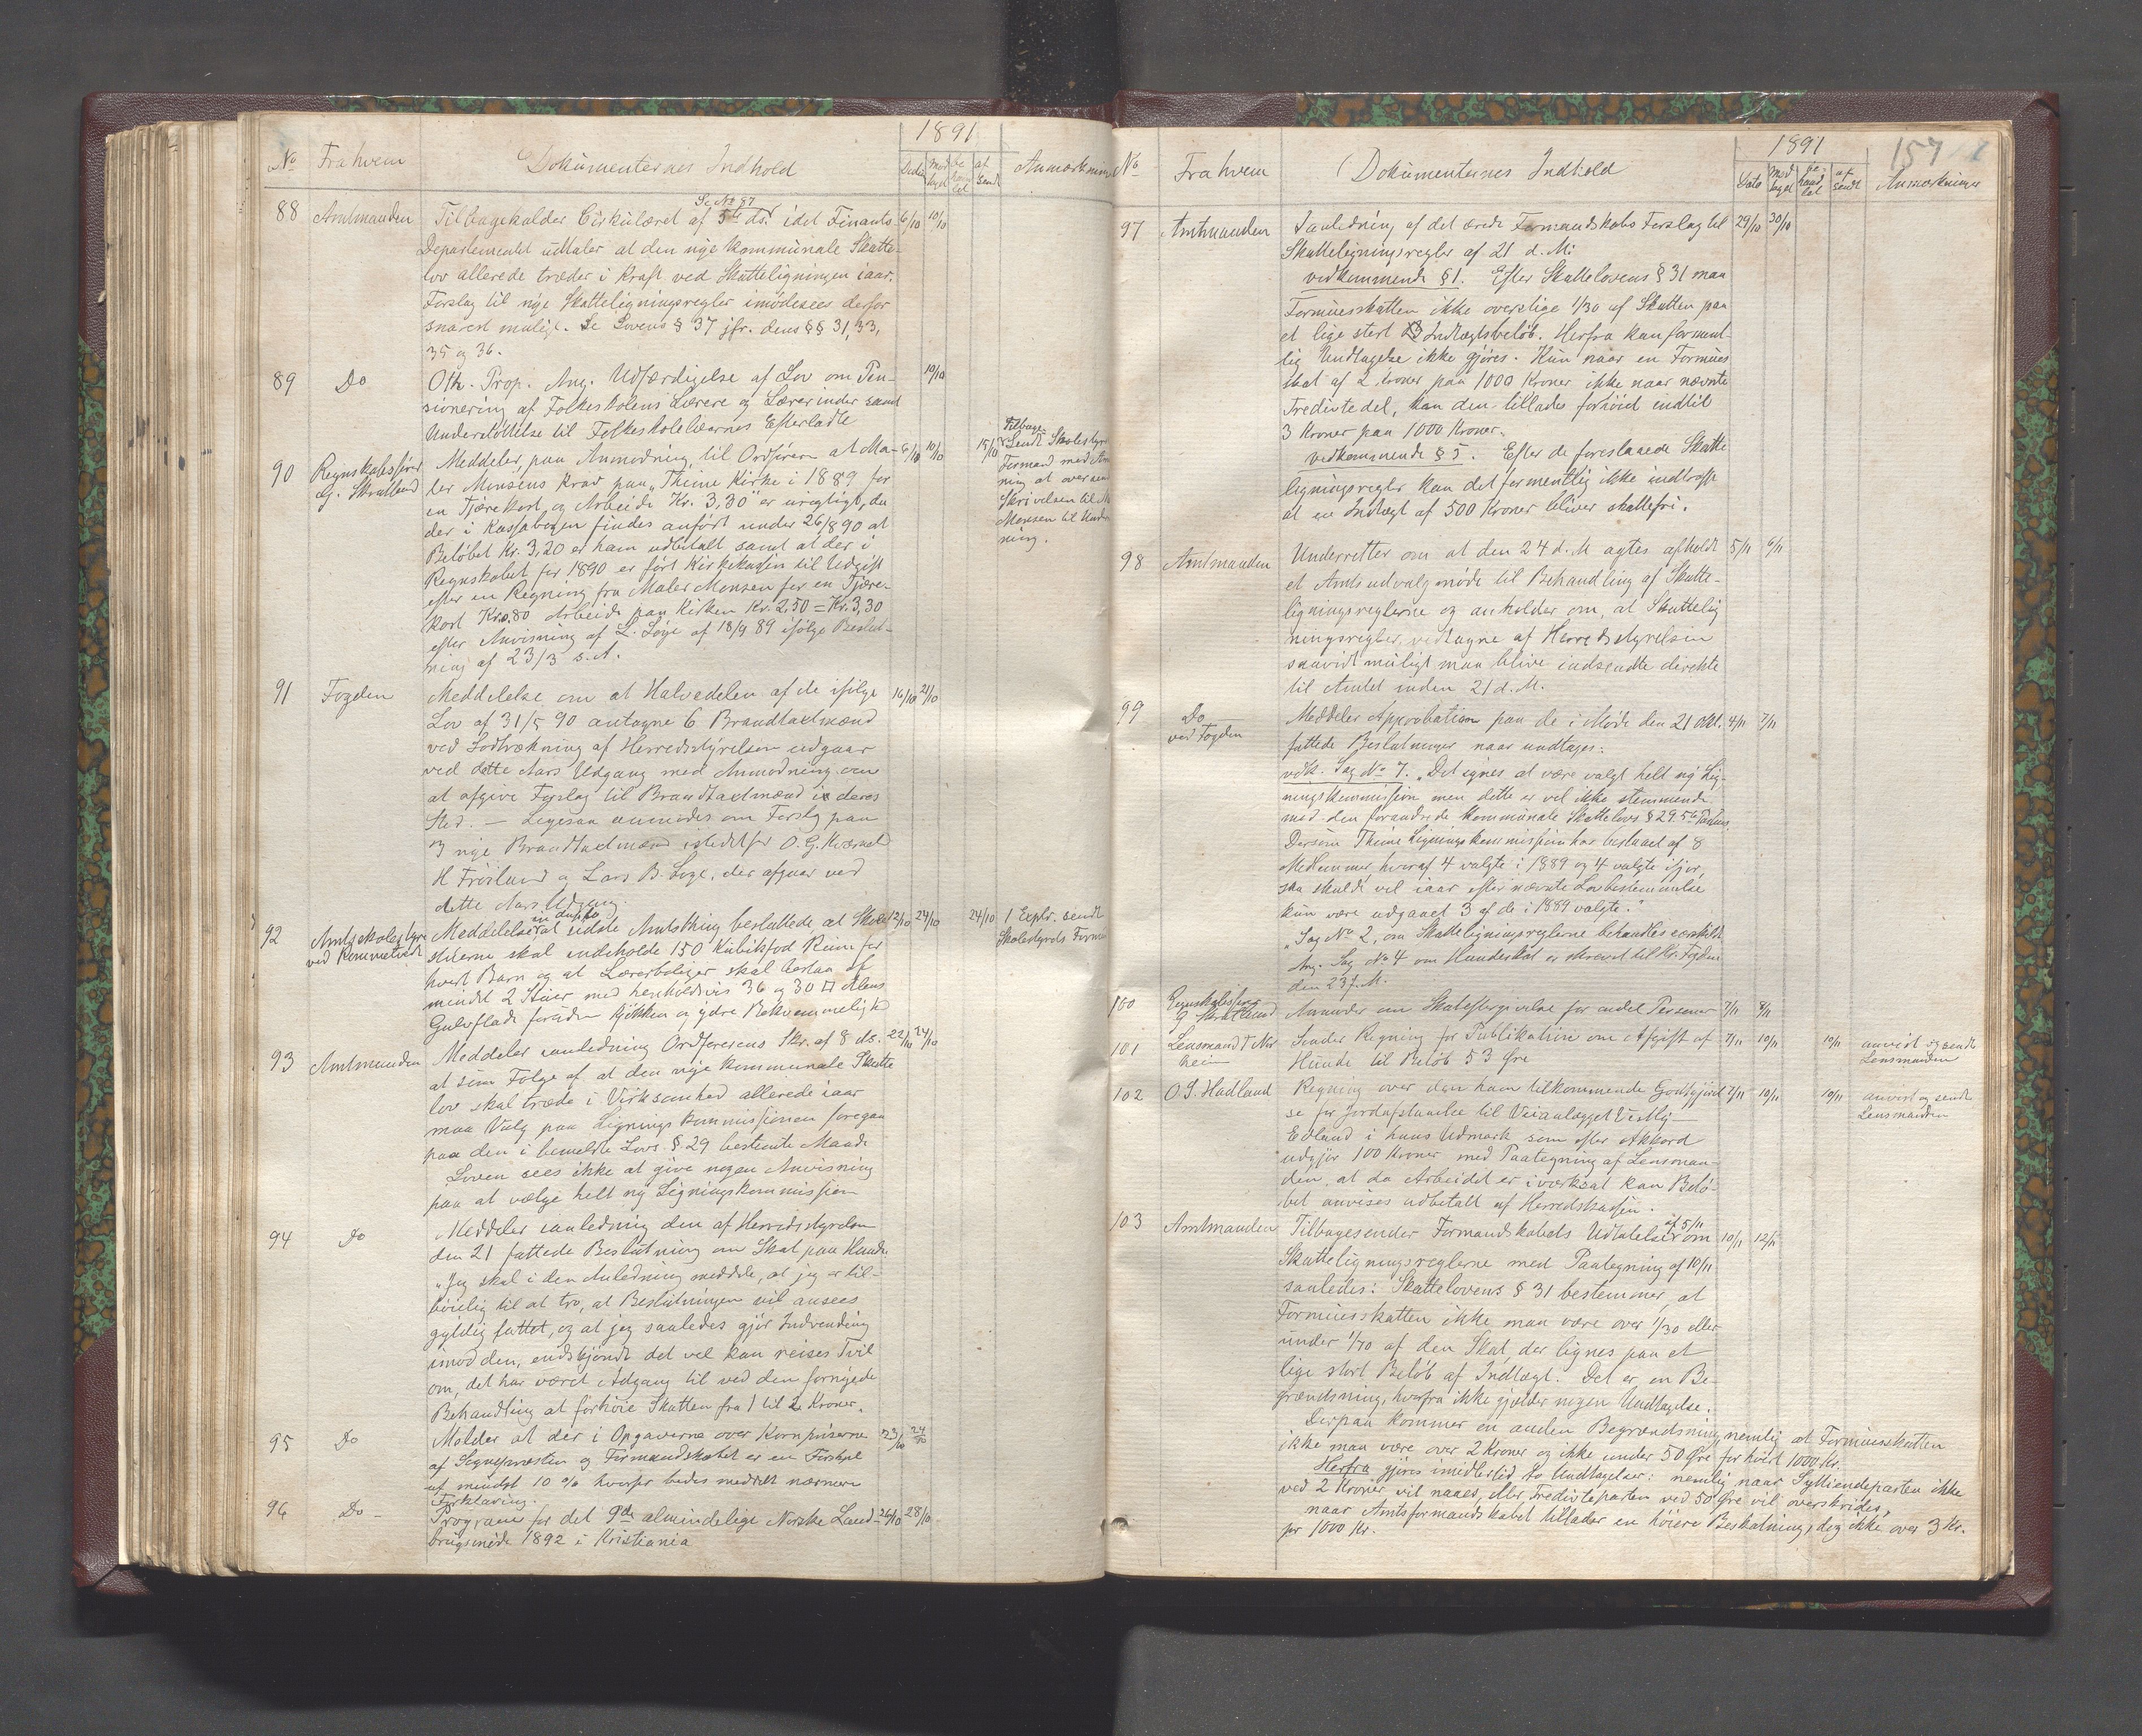 1891
No Fra hvem Dokumenternes Indhold Dato Mod taget be hand let af sendt Anmærkning
Se No 87
88 Amtmanden Tilbagekalder Cirkulæret af 5te ds. idet Finants- 6/10 10/10
Departementet udtaler at den nye kommunale Skatte-
lov allerede træder i Kraft ved Skatteligningen iaar.
Forslag til nye Skatteligningsregler imødesees derfor
snarest muligt. Se Lovens § 37 jfr. dens §§ 31, 33,
35 og 36.
89 Do Oth. Prop. Ang. Udfærdigelse af Lov om Pen- 10/10
sionering af Folkeskolens Lærere og Lærerinder samt
Understøttelse til Folkeskolelærernes Efterladte
90 Regnskabsfører G. Skratland Meddeler paa Anmodning til Ordføreren at Ma- 6/10 10/10 15/10 Tilbage-
ler Monsens Krav paa "Thime Kirke i 1889 for sendt Skolestyr
en Tjærekost og Arbeide Kr. 3,30" er urigtigt, da Formand med An
der i Kassabogen findes anført under 26/8 90 at ning at oversend
Beløbet Kr. 3,20 er ham udbetalt samt at der i Skrivelsen til M
Regnskabet for 1890 er ført Kirkekassen til Udgift Monsen til Under
efter en Regning fra Maler Monsen for en Tjære- ning.
kost Kr. 0.80 Arbeide paa Kirken Kr. 2,50 = Kr. 3,30
efter Anvisning af L. Løge af 18/9 89 ifølge Beslut-
ning af 23/3 s.A.
91 Fogden Meddelelse om at Halvedelen af de ifølge 16/10 21/10
Lov af 31/5 90 antagne 6 Brandtaxtmænd
ved Lodtrækning af Herredsstyrelsen udgaar
ved dette Aars Udgang med Anmodning om
at afgive Forslag til Brandtaxtmænd i deres
Sted. — Ligesaa anmodes om Forslg paa
3 nye Brandtaxtmænd istedetfor O. G. Kværnel
H Frøiland og Lars B. Loge, der afgaar ved
dette Aars Udgang.
in duplo
92 Amtsskolestyre ved Meddelelse at sidste Amtsthing besluttede at Skole 12/10 24/10 24/10 1 Explr. sendt
stuerne skal indeholde 150 Kubikfod Rum for Skolestyrets Forma
hvert Barn og at Lærerboliger skal bestaa af
mindst 2 Stuer med henholdsvis 36 og 30 □ Alens
Gulvflade foruden Kjøkken og ydre Bekvemmelighd
93 Amtmanden Meddeler ianledning Ordførerens Skr. af 8 ds. 22/10 24/10
at som Følge af at den nye kommunale Skatte
lov skal træde i Virksomhed allerede iaar
maa Valg paa Lignings kommissionen foregaa
paa den i bemeldte Lovs § 29 bestemte Maade
Loven sees ikke at give nogen Anvisning
paa at vælge helt ny Ligningskommission
94 Do Meddeler ianledning den af Herredsstyrelsen
den 21 fattede Beslutning om Skat paa Hunde
"Jeg skal i den Anledning meddele, at jeg er til-
bøielig til at tro, at Beslutningen vil ansees
gyldig fattet, og at jeg saaledes gjør Indvending
imod den, endskjøndt det vel kan reises Tvil
om, det har været Adgang til ved den fornyede
Behandling at forhøie Skatten fra 1 til 2 Kroner.
95 Do Melder at der i Opgaverne over Kornpriserne 23/10 24/10
af Sognepræsten og Formandskabet er en Forskjel
af mindst 10 % hvorfor bedes meddelt nærmere
Forklaring.
96 Do – Program for det 9de almindelige Norske Land- 26/10 28/10
brugsmøde 1892 i Kristiania
157
1891
No Fra hvem Dokumenternes Indhold Dato Mod taget be- hand let af sendt Anmærkninger
97 Amtmanden Ianledning af det ærede Formandskabs Forslag til 29/10 30/10
Skatteligningsregler af 21 d. M:
vedkommende § 1. Efter Skattelovens § 31 maa
Formuesskatten ikke overstige 1/30 af Skatten paa
et lige stort Indtægtsbeløb. Herfra kan forment-
lig Undtagelse ikke gjøres. Kun naar en Formues
skat af 2 Kroner paa 1000 Kroner ikke naar nævnte
Tredivtedel, kan den tillades forhøiet indtil
3 Kroner paa 1000 Kroner.
vedkommende § 5. Efter de foreslaaede Skatte
ligningsregler kan det formentlig ikke indtræffe
at en Indtægt af 500 Kroner bliver skattefri.
98 Amtmanden Underretter om at den 24 d. M agtes afholdt 5/11 6/11
et Amtsudvalgsmøde til Behandling af Skatte-
ligningsreglerne og anholder om, at Skattelig
ningsregler, vedtagne af Herredsstyrelsen
saavidt muligt maa blive indsendte direkte
til Amtet inden 21 d. M.
99 Do ved Fogden Meddeler Approbation paa de i Møde den 21 Okt. 4/11 7/11
fattede Beslutninger naar undtages:
vdk. Sag No 7. "Det synes at være valgt helt ny Lig-
ningskommission men dette er vel ikke stemmende
med den forandrede kommunale Skattelovs § 29. 5te Passus.
Dersom Thime Ligningskommission har bestaaet af 8
Medlemmer, hvoraf 4 valgte i 1889 og 4 valgte ifjor,
saa skulde vel iaar efter nævnte Lovbestemmelse
kun være udgaaet 3 af de i 1889 valgte."
"Sag No 2, om Skatteligningsreglerne behandles særskildt
Ang. Sag No 4 om Hundeskat er skrevet til Hr. Fogden
den 23 f. M.
100 Regnskabsfører G Skratland Anmoder om Skatteftergivelse for endel Personer 7/11 8/11
101 Lensmand Sender Regning for Publikation om Afgift af 7/11 10/11 10/11 anvist og sendt
Hunde til Beløb 53 Øre Lensmanden
102 O. S. Hadland Regning over den ham tilkommende Godtgjørel 7/11 10/11 10/11 anvist og sendt
se for Jordafstaaelse til Veianlægget Vestly— Lensmanden
Edland i hans Udmark som efter Akkord
udgjør 100 Kroner med Paategning af Lensman-
den, at da Arbeidet er iværksat kan Belø-
bet anvises udbetalt af Herredskassen.
af 5/11
103 Amtmanden Tilbagesender Formandskabets Udtalelser om 10/11 12/11
Skatteligningsreglerne med Paategning af 10/11
saaledes: Skattelovens § 31 bestemmer, at
Formuesskatten ikke maa være over 1/30 eller
under 1/70 af den Skat, der lignes paa et
lige stort Beløb af Indtægt. Det er en Be-
grændsning, hvorfra ikke gjælder nogen Undtagelse.
Derpaa kommer en anden Begrændsning, nemlig at Formuesskatten
ikke maa være over 2 Kroner og ikke under 50 Øre for hvert 1000 Kr.
Herfra gjøres imidlertid to Undtagelser: nemlig naar Syttiendeparten ikke
ved 2 Kroner vil naaes, eller Tredivteparten ved 50 Øre vil overskrides,
naar Amtsformandskabet tillader en høiere Beskatning, dog ikke over 3 Kr.
pr 1000 Kr.